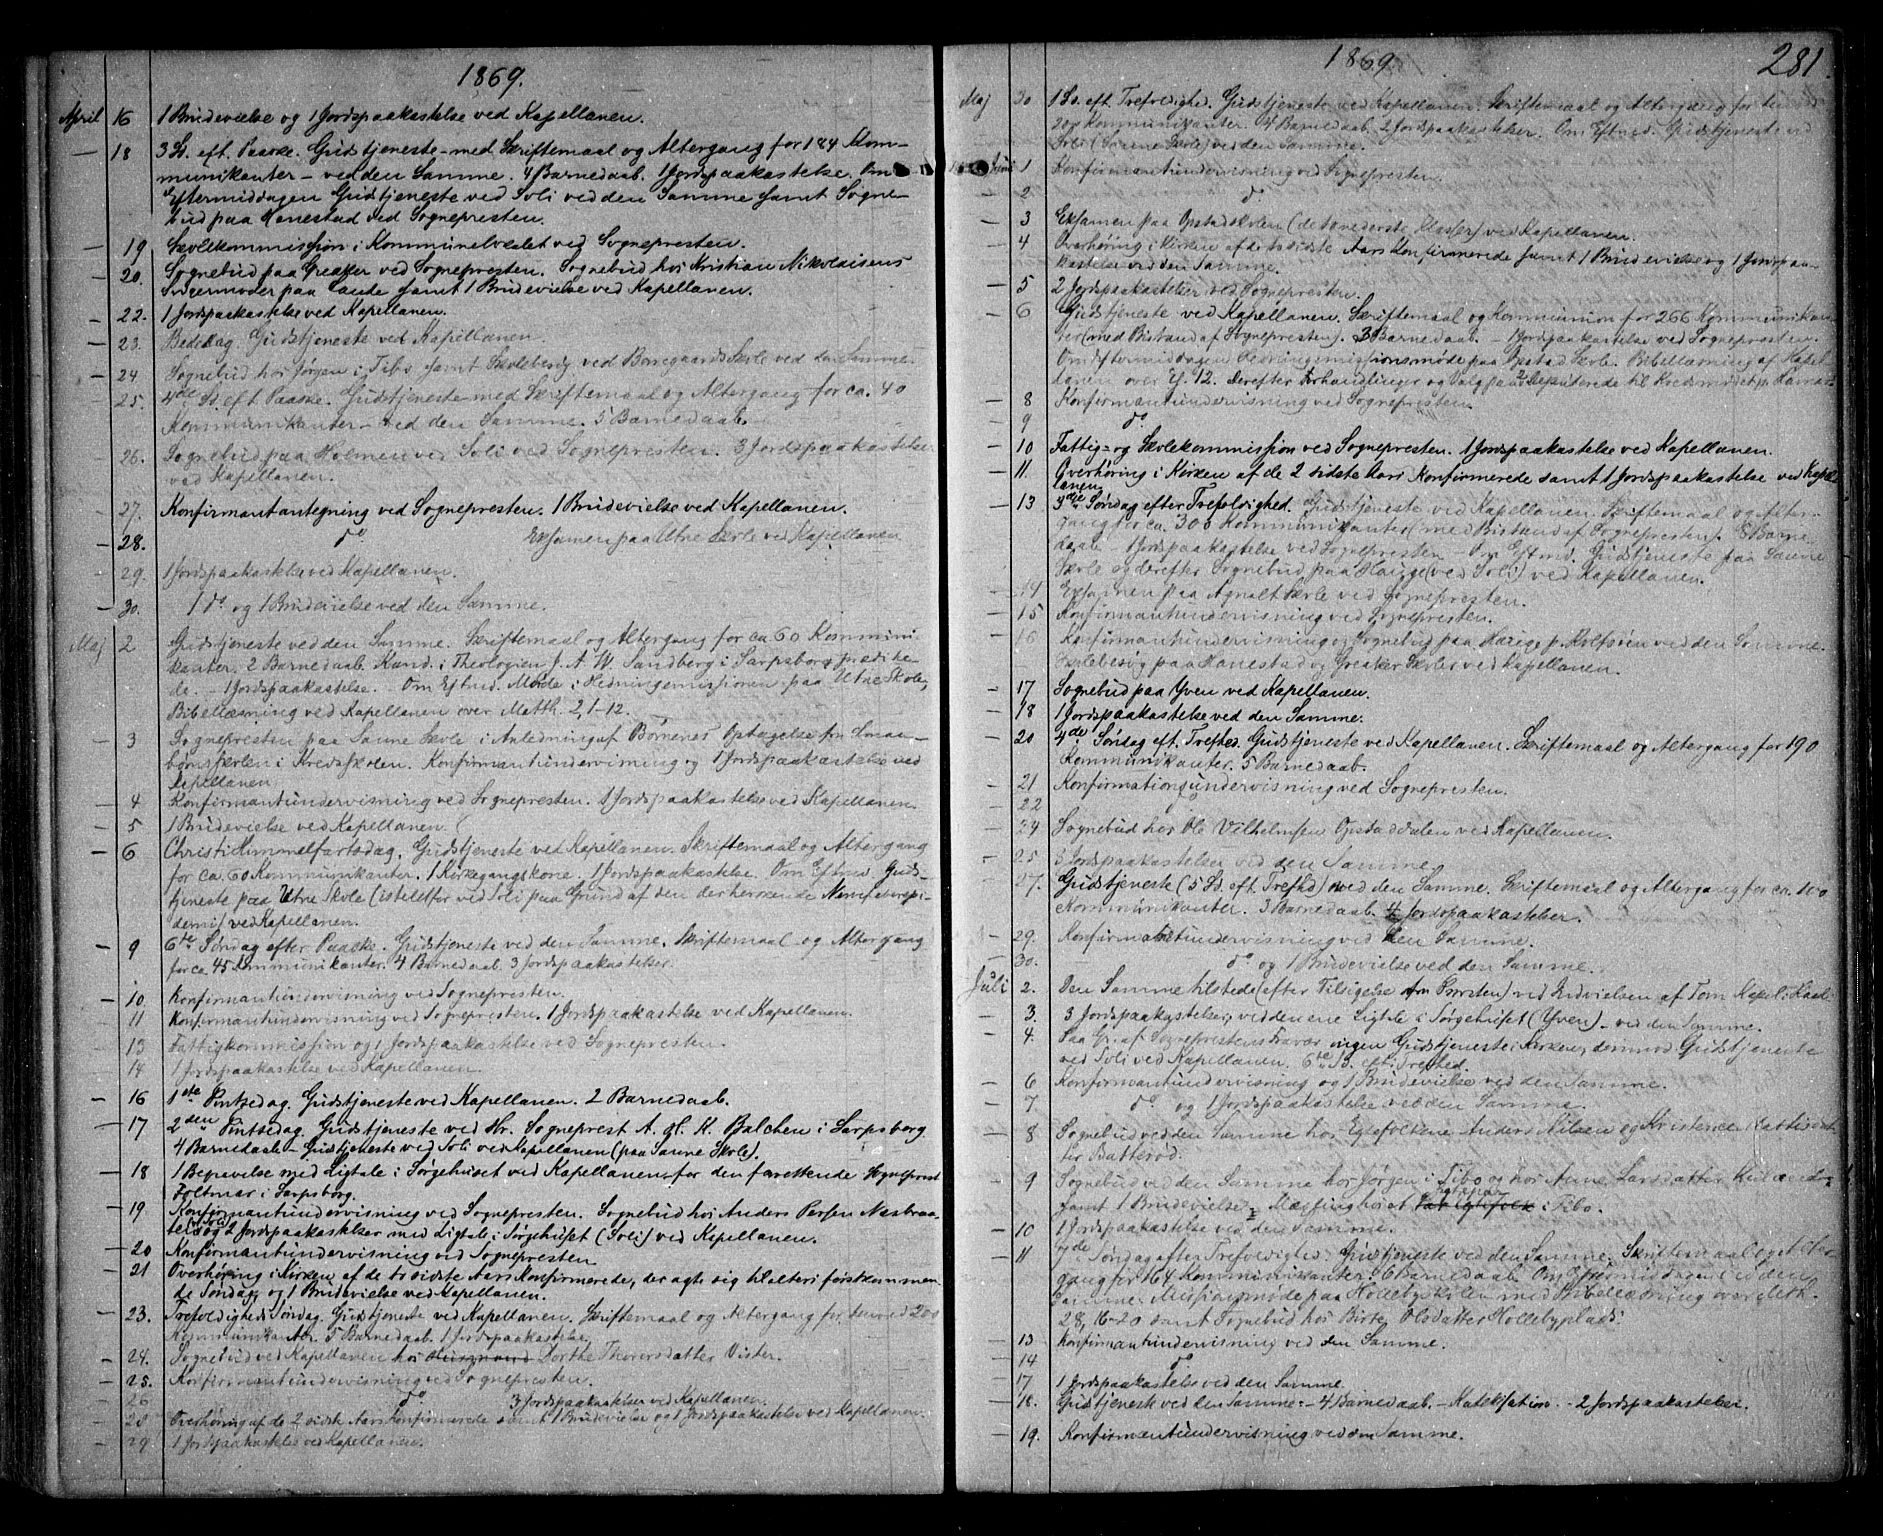 1869.
April 16 1 Brudevielse og 1 Jordspaakastelse ved Kapellanen.
— 18 3 S. eft. Paaske. Gudstjeneste med Skriftemaal og Altergang for 144 Kom-
munikanter – ved den Samme. 4 Barnedaab. 1 Jordspaakastelse. Om
Eftermiddagen Gudstjeneste ved Soli ved den Samme samt Sogne-
bud paa Hanestad ved Sognepresten.
— 19 Skolekommission i Kommunelocalet ved Sognepresten.
— 20. Sognebud paa Greaker ved Sognepresten. Sognebud hos Kristian Nikolaisens
Svigermoder paa Laude samt 1 Brudevielse ved Kapellanen.
— 22. 1 Jordspaakastelse ved Kapellanen.
— 23. Bededag. Gudstjeneste ved Kapellanen.
— 24 Sognebud hos Jørgen i Tibo samt Skolebesøg ved Borregaards Skole ved den Samme.
— 25. 4de S. eft Paaske. Gudstjeneste med Skriftemaal og Altergang – for ca. 40
Kommunikanter – ved den Samme. 5 Barnedaab.
— 26. Sognebud paa Holmen ved Soli ved Sognepresten. 3 Jordspaakastelser
ved Kapellanen.
— 27. Konfirmantantegning ved Sognepresten. 1 Brudevielse ved Kapellanen.
— 28. do Exsamen paa Utne Skole ved Kapellanen
— 29. 1 Jordspaakastelse ved Kapellanen.
— 30. 1 do og 1 Brudevielse ved den Samme.
Maj 2 Gudstjeneste ved den Samme. Skriftemaal og Altergang for ca 60 Kommuni-
kanter. 2 Barnedaab. Kand. i Theologien J. A. W. Sandberg i Sarpsborg prædike-
de. – 1 Jordspaakastelse. – Om Eftmd. Møde i Hedningemissionen paa Utne Skole,
Bibellæsning ved Kapellanen over Matth. 2, 1–12.
— 3 Sognepresten paa Saune Skole i Anledning af Børnenes Optagelse fra Smaa-
børnskolen i Kredsskolen. Konfirmantundervisning og 1 Jordspaakastelse ved
Kapellanen
— 4 Konfirmantundervisning ved Sognepresten. 1 Jordspaakastelse ved Kapellanen
— 5 1 Brudevielse ved Kapellanen.
— 6 Christi Himmelfartsdag. Gudstjeneste ved Kapellanen. Skriftemaal og Altergang
for ca. 60 Kommunikanter. 1 Kirkegangskone. 1 Jordspaakastelse. Om Eftmd Guds-
tjeneste paa Utne Skole (istedetfor ved Soli paa Grund af den derherskende Nervefeberepi-
demi) ved Kapellanen.
— 9 6te Søndag efter Paaske. Gudstjeneste ved den Samme. Skriftemaal og Altergang
for ca. 45 Kommunikanter. 4 Barnedaab. 3 Jordspaakastelser.
— 10 Konfirmantundervisning ved Sognepresten.
— 11 Konfirmantundervisning ved Sognepresten. 1 Jordspaakastelse ved Kapellanen.
— 13 Fattigkommission og 1 Jordspaakastelse ved Sognepresten.
— 14 1 Jordspaakastelse ved Kapellanen.
— 16 1ste Pintsedag. Gudstjeneste ved Kapellanen. 2 Barnedaab.
— 17 2den Pintsedag. Gudstjeneste ved Hr. Sogneprest A. H. K. Balchen i Sarpsborg
4 Barnedaab – Gudstjeneste ved Soli ved Kapellanen (paa Saune Skole).
— 18 1 Begravelse med Ligtale i Sørgehuset ved Kapellanen for den fraværende Sogneprest
Foltmar i Sarpsborg.
— 19 Konfirmantundervisning ved Sognepresten. Sognebud hos Anders Persen Næsbraa-
ten (v. Soli) og 2 Jordspaakastelser med Ligtale i Sørgehuset (Soli) ved Kapellanen.
— 20 Konfirmantundervisning ved Sognepresten
— 21 Overhøring i Kirken af de to sidste Aars Konfirmerede, der agte sig til Alters førstkommen-
de Søndag, og 1 Brudevielse ved Kapellanen.
— 23. Trefoldigheds Søndag. Gudstjeneste ved Kapellanen. Skriftemaal og Altergang for henved 200
Kommunikantr. 5 Barnedaab. 1 Jordspaakastelse.
— 24. Sognebud ved Kapellanen hos Dorthe Thorersdatter Vister.
— 25. Konfirmantundervisning ved Sognepresten.
— 26 do 3 Jordspaakastelser ved Kapellanen.
— 28 Overhøring af de 2 sidste Aars Konfirmerede samt 1 Brudevielse og 1 Jordspaakastelse ved Kapellanen.
— 29. 1 Jordspaakastelse ved Kapellanen.
1869. 281.
Maj 30 1 S. eft. Trefoldighed. Gudstjeneste ved Kapellanen. Skriftemaal og Altergang for henved
200 Kommunikanter. 4 Barnedaab. 2 Jordspaakastelser. Om Eftmd. Gudstjeneste ved
Soli (Saune Skole) ved den Samme.
Juni 1 Konfirmantundervisning ved Sognepresten.
— 2 do
— 3 Exsamen paa Opstadskolen (de to nederste Klasser) ved Kapellanen.
— 4 Overhøring i Kirken af de to sidste Aars Konfirmerede samt 1 Brudevielse og 1 Jordspaa-
kastelse ved den Samme.
— 5 2 Jordspaakastelser ved Sognepresten.
— 6 Gudstjeneste ved Kapellanen. Skriftemaal og Kommunion for 266 Kommunikan-
ter (med Bistand af Sognepresten). 3 Barnedaab. – 1 Jordspaakastelse ved Sognepresten.
Om Eftermiddagen Hedningemissionsmøde paa Opstad Skole. Bibellæsning af Kapel-
lanen over 12. Derefter Forhandlinger og Valg paa 2 Deputerede til Kredsmødet p. Hamar.
— 8 Konfirmantundervisning ved Sognepresten.
— 9 do
— 10 Fattig- og Skolekommission ved Sognepresten. 1 Jordspaakastelse ved Kapellanen.
— 11. Overhøring i Kirken af de 2 sidste Aars Konfirmerede samt 1 Jordspaakastelse ved Kapel-
lanen.
— 13 3die Søndag efter Trefoldighed. Gudstjeneste ved Kapellanen. Skriftemaal og Alter-
gang for ca. 300 Kommunikanter (med Bistand af Sognepresten). Barne-
daab – 1 Jordspaakastelse ved Sognepresten – Om Eftmd. Gudstjeneste paa Saune
Skole og derefter Sognebud paa Hauge (ved Soli) ved Kapellanen.
— 14 Exsamen paa Agnalt Skole ved Sognepresten.
— 15 Konfirmantundervisning ved Sognepresten.
— 16 Konfirmantundervisning og Sognebud paa Haugen p. Rolfsøen ved den Samme.
Skolebesøg paa Hanestad og Greaker Skoler ved Kapellanen.
— 17 Sognebud paa Yven ved Kapellanen.
— 18 1 Jordspaakastelse ved den Samme.
— 20 4de Søndag eft. Trefhd. Gudstjeneste ved Kapellanen. Skriftemaal og Altergang for 190
Kommunikanter. 5 Barnedaab.
— 21 Konfirmationsundervisning ved Sognepresten.
— 22
— 24 Sognebud hos Ole Vilhelmsen Opstaddalen ved Kapellanen.
— 25 3 Jordspaakastelser ved den Samme.
— 27. Gudstjeneste (5 S. eft. Trefhd) ved den Samme. Skriftemaal og Altergang for ca. 100
Kommunikanter. 3 Barnedaab. 4 Jordspaakastelser.
— 29. Konfirmantundervisning ved den Samme.
— 30. do og 1 Brudevielse ved den Samme.
Juli 2. Den Samme tilstede (efter Tilsigelse fra Provsten) ved Indvielsen af Tom Kapel i Raade
— 3. 3 Jordspaakastelser, ved den ene Ligtale i Sørgehuset (Yven) – ved den Samme.
— 4. Paa Gr. af Sogneprestens Fravær ingen Gudstjeneste i Kirken, derimod Gudstjeneste
ved Soli ved Kapellanen. 6te S. eft. Trefhed.
— 6 Konfirmantundervisning og 1 Brudevielse ved den Samme.
— 7 do og 1 Jordspaakastelse ved den Samme.
— 8 Sognebud ved den Samme hos Egtefolkene Anders Nilsen og Kristence Mattisdat-
ter Batterød.
— 9 Sognebud ved den Samme hos Jørgen i Tibo og hos Anne Larsdatter
samt 1 Brudevielse hos et i Tibo.
— 10 1 Jordspaakastelse ved den Samme.
— 11 7de Søndag efter Trefoldighed. Gudstjeneste ved den Samme. Skriftemaal og Alter-
gang for 164 Kommunikanter. 6 Barnedaab. Om Eftermiddagen (ved den
Samme) Missionsmøde paa Hollebyskolen med Bibellæsning over Mtth.
28, 16–20 samt Sognebud hos Birte Olsdatter Hollebyplads.
— 13 Konfirmantundervisning ved den Samme.
— 14 do
— 17 1 Jordspaakastelse ved den Samme.
— 18. Gudstjeneste ved den Samme. – 4 Barnedaab. – Katekisation. – 2 Jordspaakastelser.
— 19. Konfirmantundervisning ved den Samme.